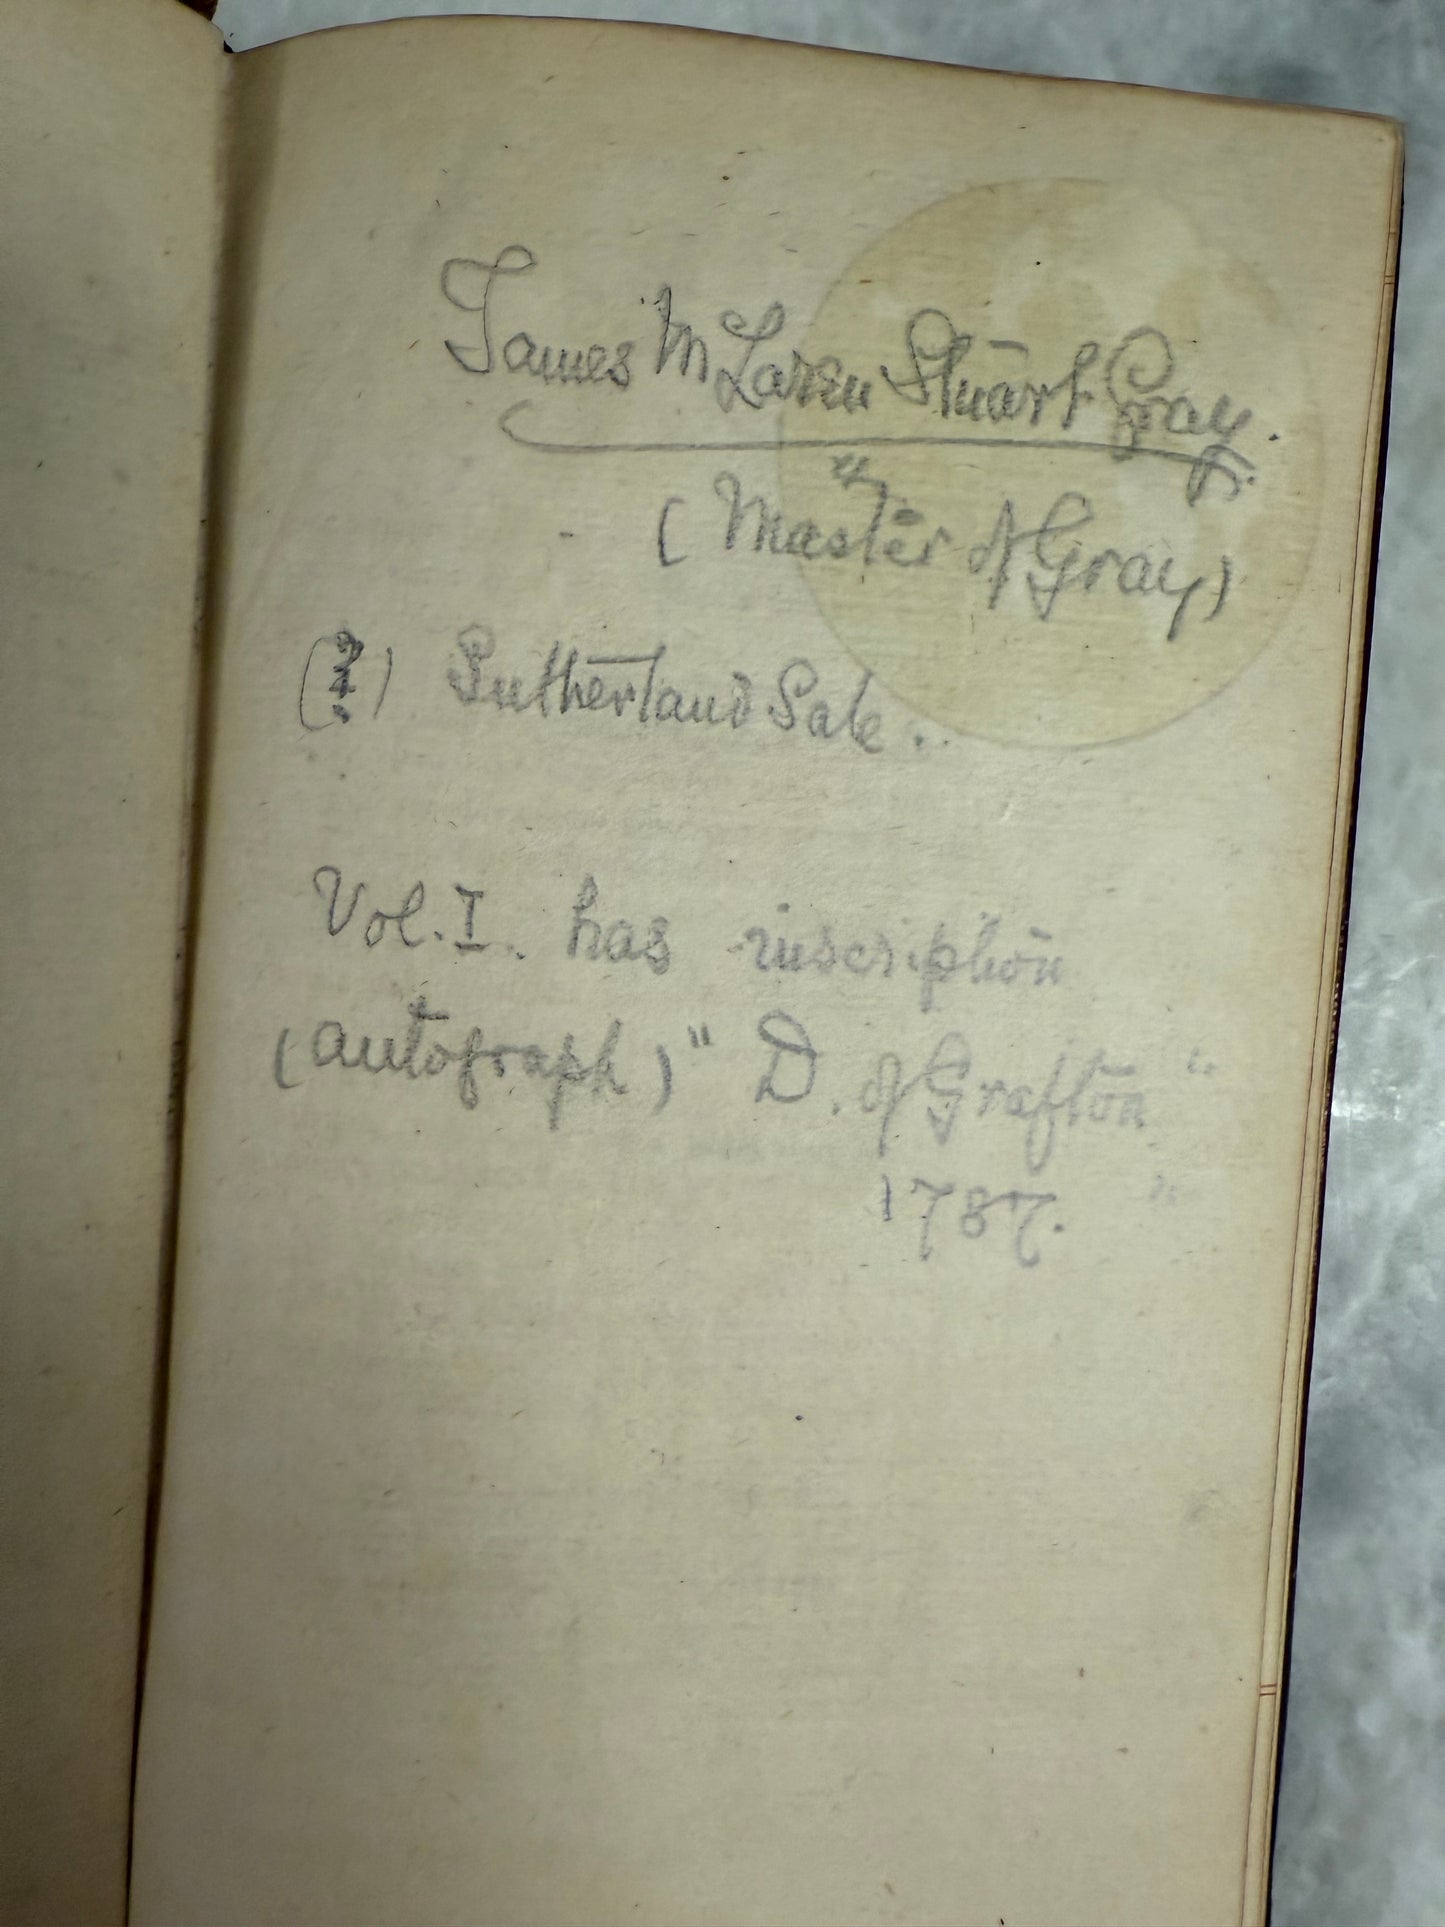 James McLaren Stuart Gray.
(Master of Gray)
(?) Sutherland Sale.
Vol. I. has inscription
(autograph) " D. of Grafton "
1787. "